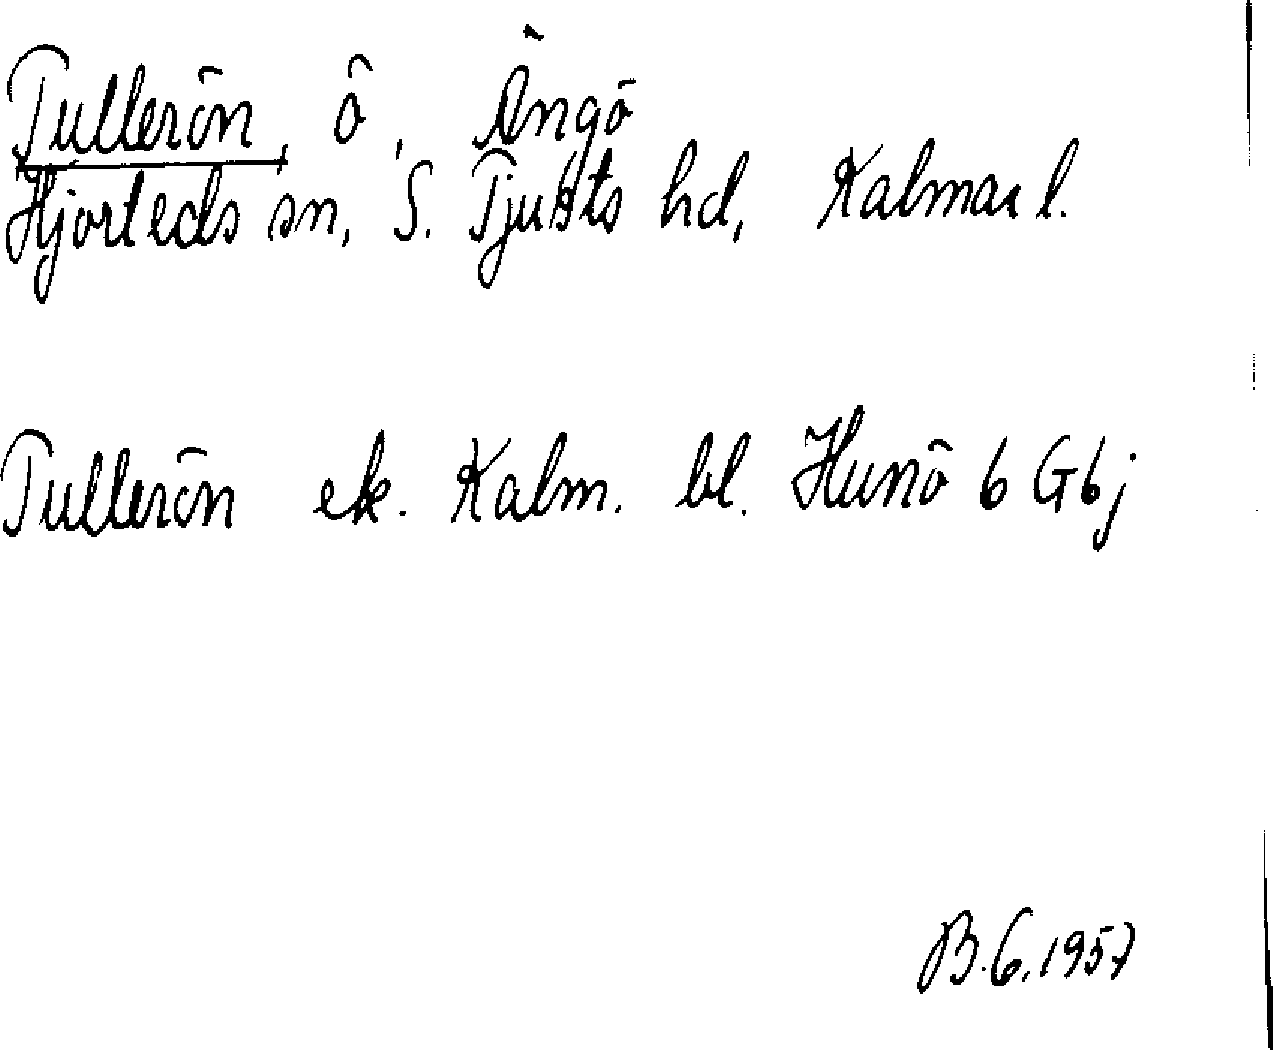 Tullerön, ö, Ängö
Hjorteds sn, S. Tjusts hd, Kalmar l.
Tullerön ek. Kalm. bl. Hunö 6 G6j
B.G. 1957